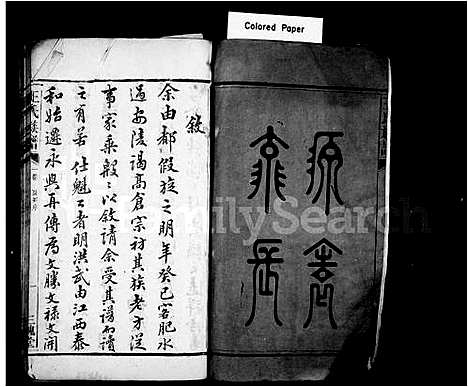 Colored Paper
源遠流長
敘
余由都假旋之明年癸巳客肥水
過安陵謁高倉宗祠其族老方從
事家乘殷殷以敘請余受其譜而讀
之有若仕魁公者明洪武由江西泰
和始遷永興再傳為文勝文祿文開
王氏族譜
三槐堂
FamilySearch